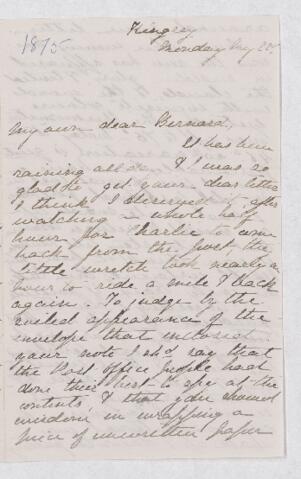 1875
Kingrey
Monday Aug 23rd
My own dear Bernard,
It has been
raining all day & I was so
glad to get your dear letter
I think I deserved it after
watching a whole half
hour for Charlie to come
back from the post the
little wretch took nearly an
hour to ride a mile & back
again. To judge by the
soiled appearance of the
envelope that inclosed
your note I shd say that
the Post Office people had
done their best to spy at the
contents, & that you showed
wisdom in wrapping a
piece of unwritten paper